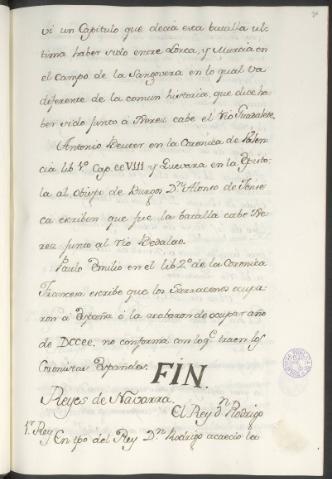 vi un Capitulo que decia esta batalla ul-
tima haber sido entre Lorca, y Murcia en
el campo de la Sangonera en lo qual va
diferente de la comun historia, que dice ha-
ber sido junto a Xerez cabe el Rio Guadalete.
Antonio Beuter en la Coronica de Valen-
cia lib 1º Cap. ccVIII y Guevara en la Episto-
la al obispo de Burgos Dn Alonso de
escriben que fue la batalla cabe Xe-
rez junto al rio Bedalac.
Paulo Emilio en el lib 2º de la Coronica
Francesa escribe que los Sarracenos ocupa-
ron a España o la acabaron de ocupar año
de DCCCC. no conforma con lo q. traen los
Coronistas Españoles. FIN.
Reyes de Navarra.
El Rey Dn Rodrigo
1r Rey En tpo del Rey Dn Rodrigo acaecio la